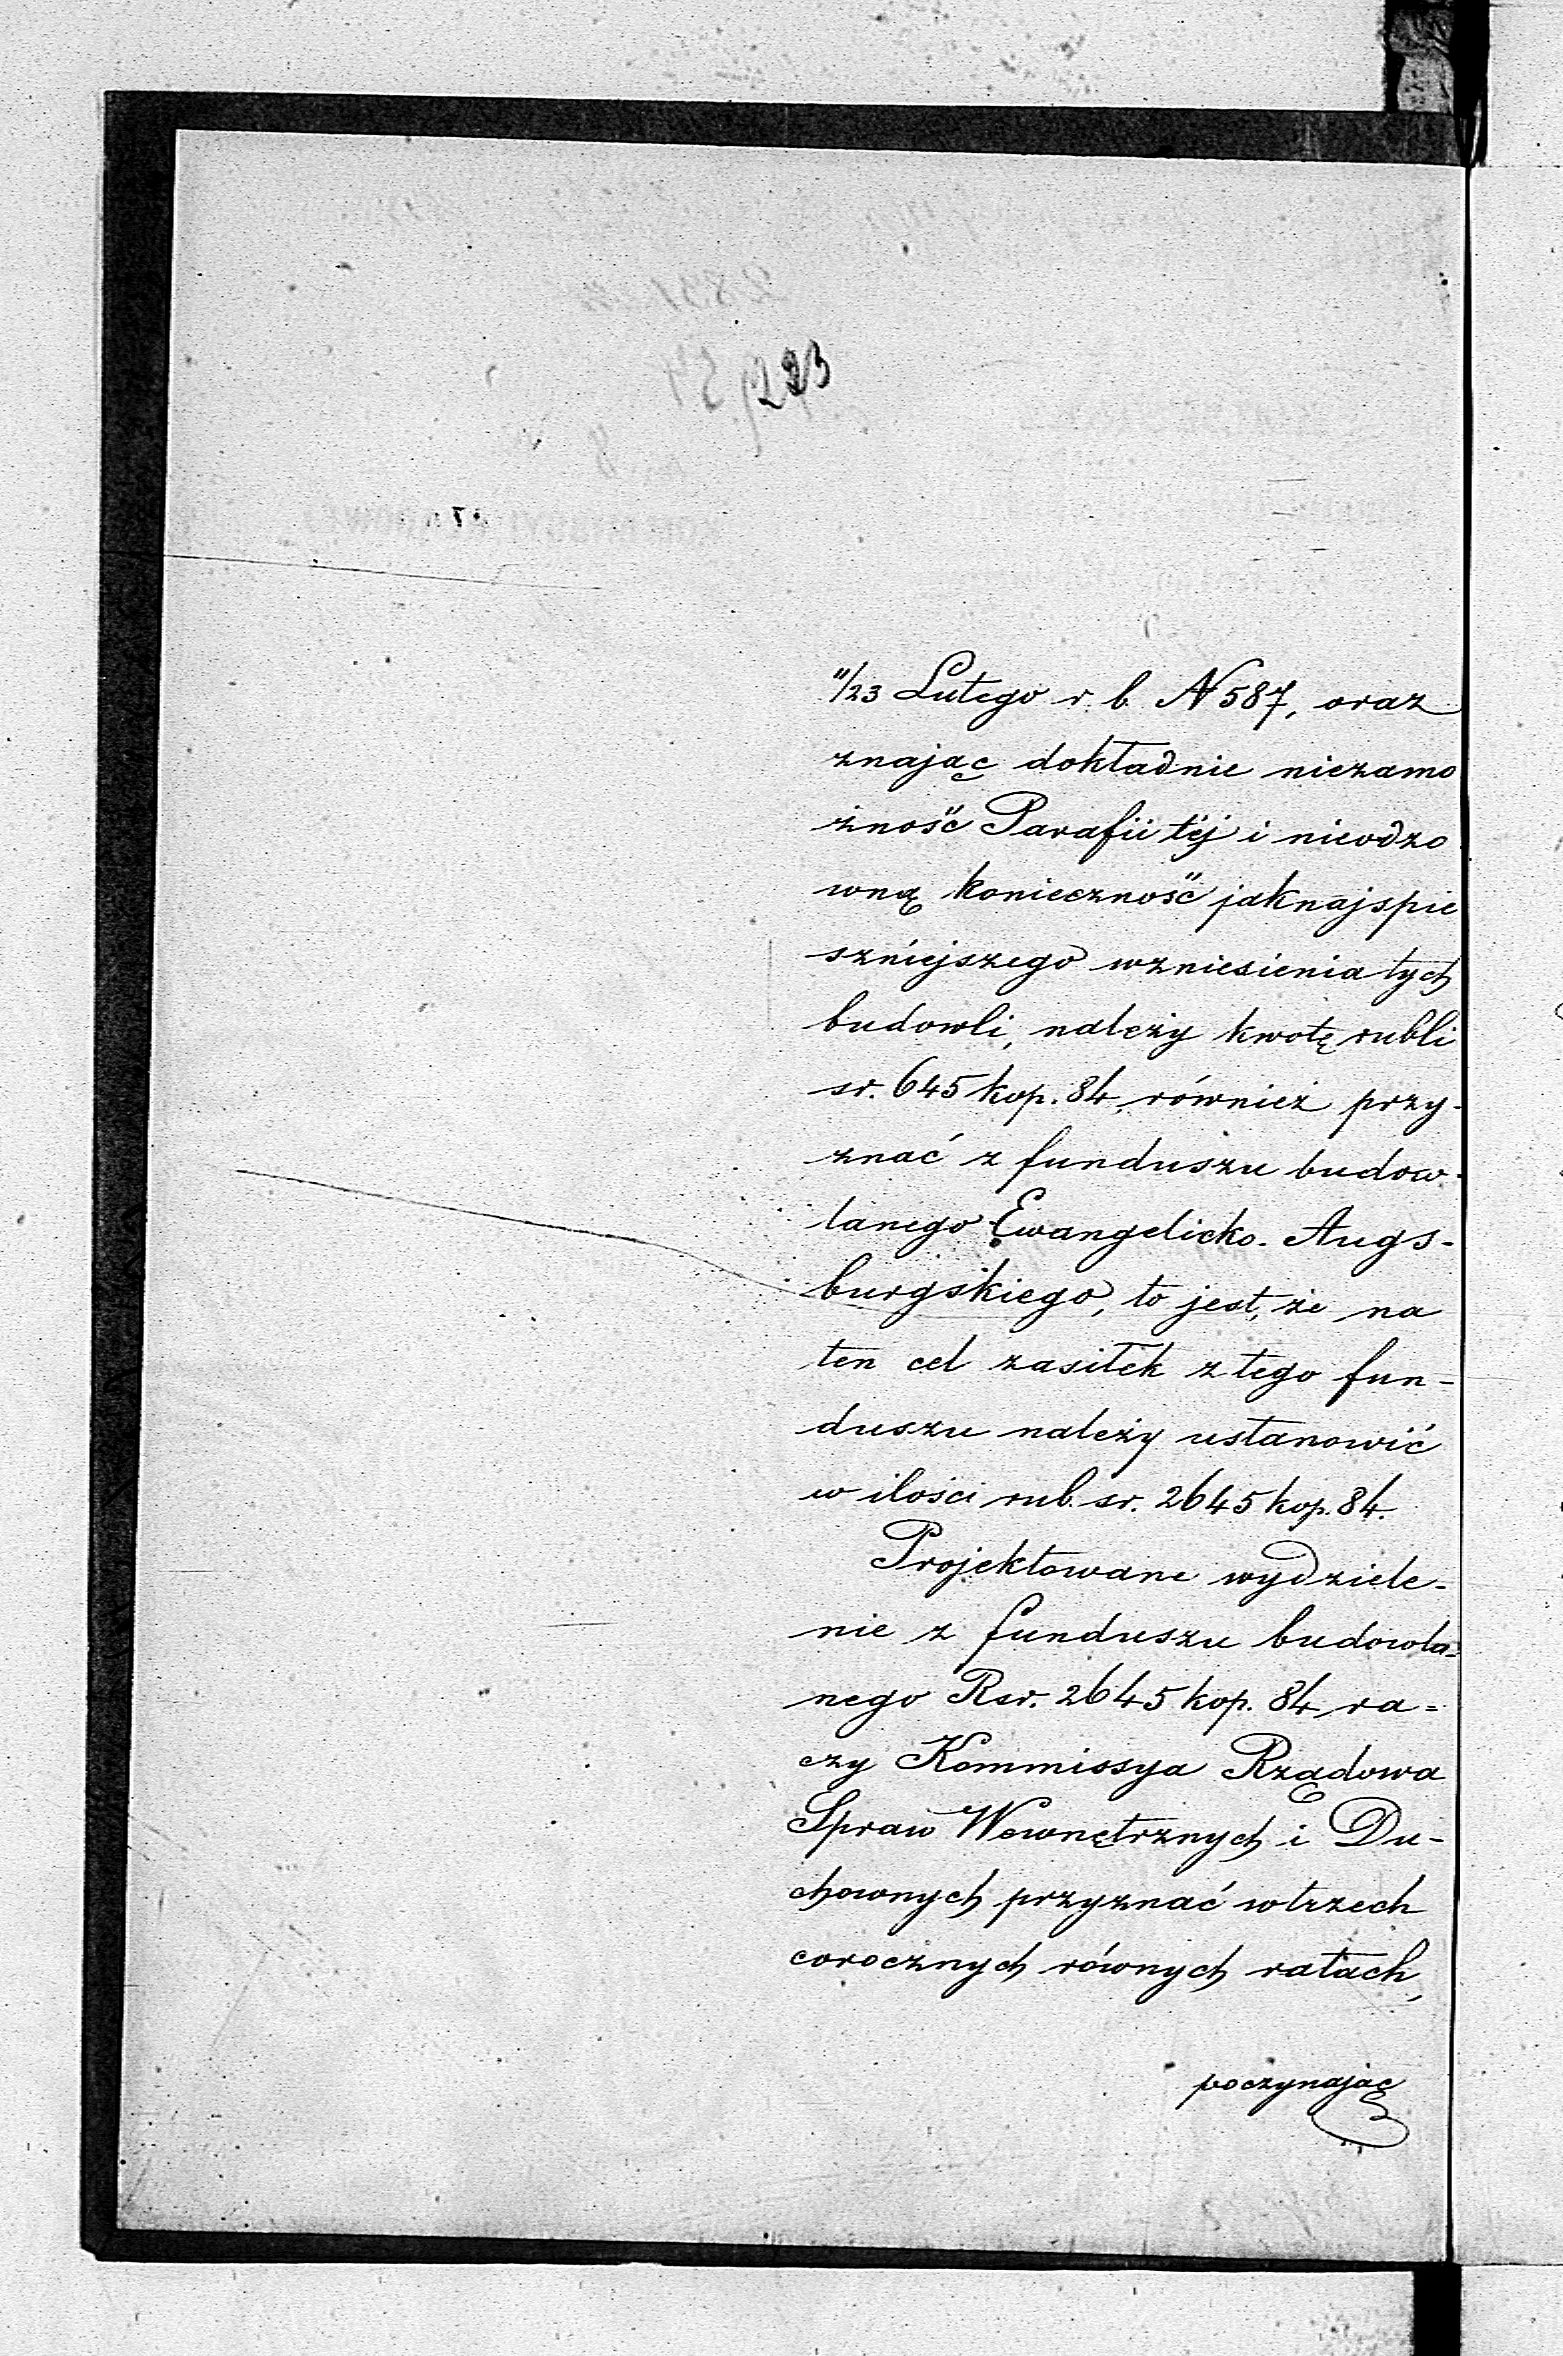 223
11/23 Lutego r. b. N 587, oraz
znając dokładnie niezamo
żność Parafii téj i nieodzo
wną konieczność jaknajspie
szniejszego wzniesienia tych
budowli, należy kwotę rubli
sr. 645 kop. 84, również przy-
znać z funduszu budow-
lanego Ewangelicko-Augs-
burgskiego, to jest, że na
ten cel zasiłek z tego fun-
duszu należy ustanowić
w ilości rub. sr. 2645 kop. 84.
Projektowane wydziele-
nie z funduszu budowla=
nego Rsr. 2645 kop. 84 ra=
czy Kommissya Rządowa
Spraw Wewnętrznych i Du-
chownych przyznać w trzech
corocznych równych ratach,
poczynając